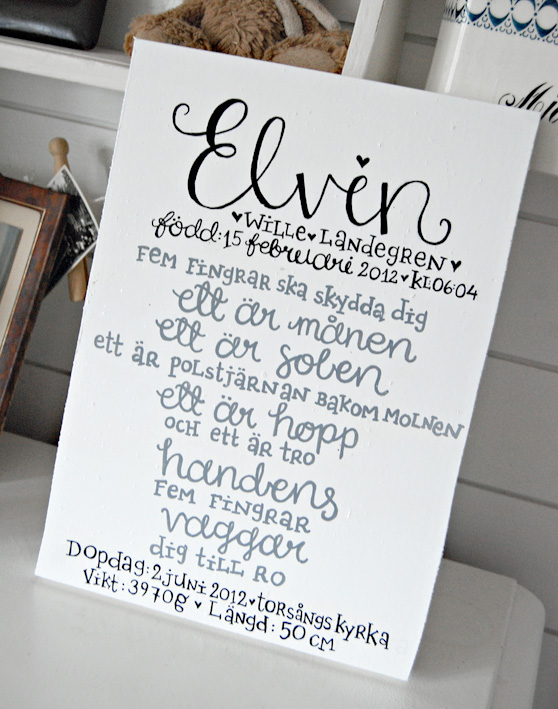 Elvin
♥WILLE♥LANDEGREN♥
född:15 februari 2012♥KL06:04
FEM FINGRAR SKA SKYDDA DIG
ett är månen
ett är solen
ett är POLSTJÄRNAN BAKOM MOLNEN
ett är hopp
OCH ETT ÄR TRO
handens
FEM FINGRAR
vaggar
dig TILL RO
Dopdag:2 juni 2012♥TORSÅNGS KYRKA
Vikt:3970g ♥ Längd:50 CM